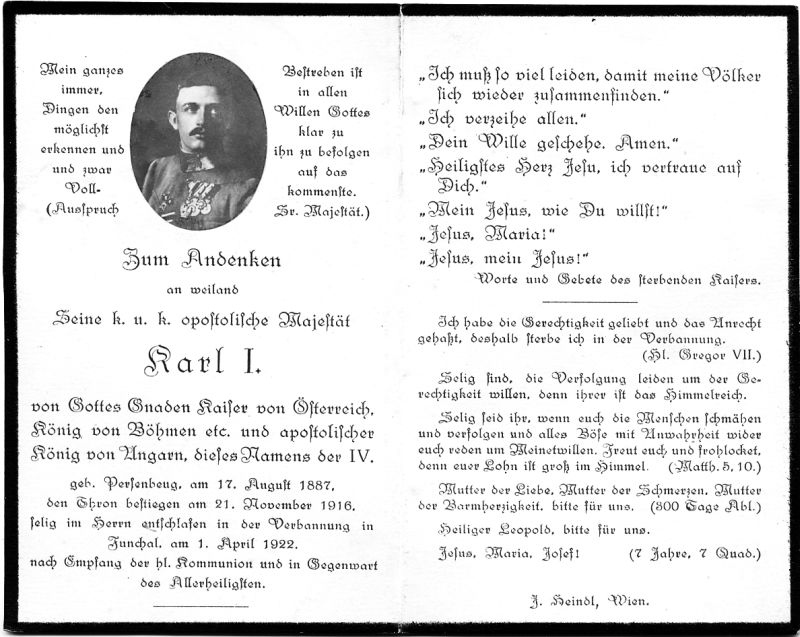 Mein ganzes Bestreben ist
immer, in allen
Dingen den Willen Gottes
möglichst klar zu
erkennen und ihn zu befolgen
und zwar auf das
Voll- kommenste.
(Ausspruch Sr. Majestät.)
Zum Andenken
an weiland
Seine k. u. k. apostolische Majestät
Karl I.
von Gottes Gnaden Kaiser von Österreich,
König von Böhmen etc. und apostolischer
König von Ungarn, dieses Namens der IV.
geb. Persenbeug, am 17. August 1887,
den Thron bestiegen am 21. November 1916,
selig im Herrn entschlafen in der Verbannung in
Funchal, am 1. April 1922,
nach Empfang der hl. Kommunion und in Gegenwart
des Allerheiligsten.
„Ich muß so viel leiden, damit meine Völker
sich wieder zusammenfinden.“
„Ich verzeihe allen.“
„Dein Wille geschehe. Amen.“
„Heiligstes Herz Jesu, ich vertraue auf
Dich.“
„Mein Jesus, wie Du willst!“
„Jesus, Maria!“
„Jesus, mein Jesus!“
Worte und Gebete des sterbenden Kaisers.
Ich habe die Gerechtigkeit geliebt und das Unrecht
gehaßt, deshalb sterbe ich in der Verbannung.
(Hl. Gregor VII.)
Selig sind, die Verfolgung leiden um der Ge-
rechtigkeit willen, denn ihrer ist das Himmelreich.
Selig seid ihr, wenn euch die Menschen schmähen
und verfolgen und alles Böse mit Unwahrheit wider
euch reden um Meinetwillen. Freut euch und frohlocket,
denn euer Lohn ist groß im Himmel. (Matth. 5, 10.)
Mutter der Liebe, Mutter der Schmerzen, Mutter
der Barmherzigkeit, bitte für uns. (300 Tage Abl.)
Heiliger Leopold, bitte für uns.
Jesus, Maria, Josef! (7 Jahre, 7 Quad.)
J. Heindl, Wien.